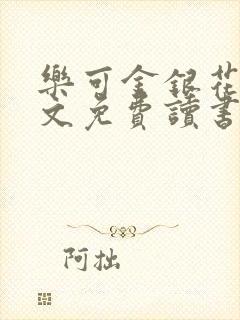 樂可金銀花
文免費讀書
阿拙